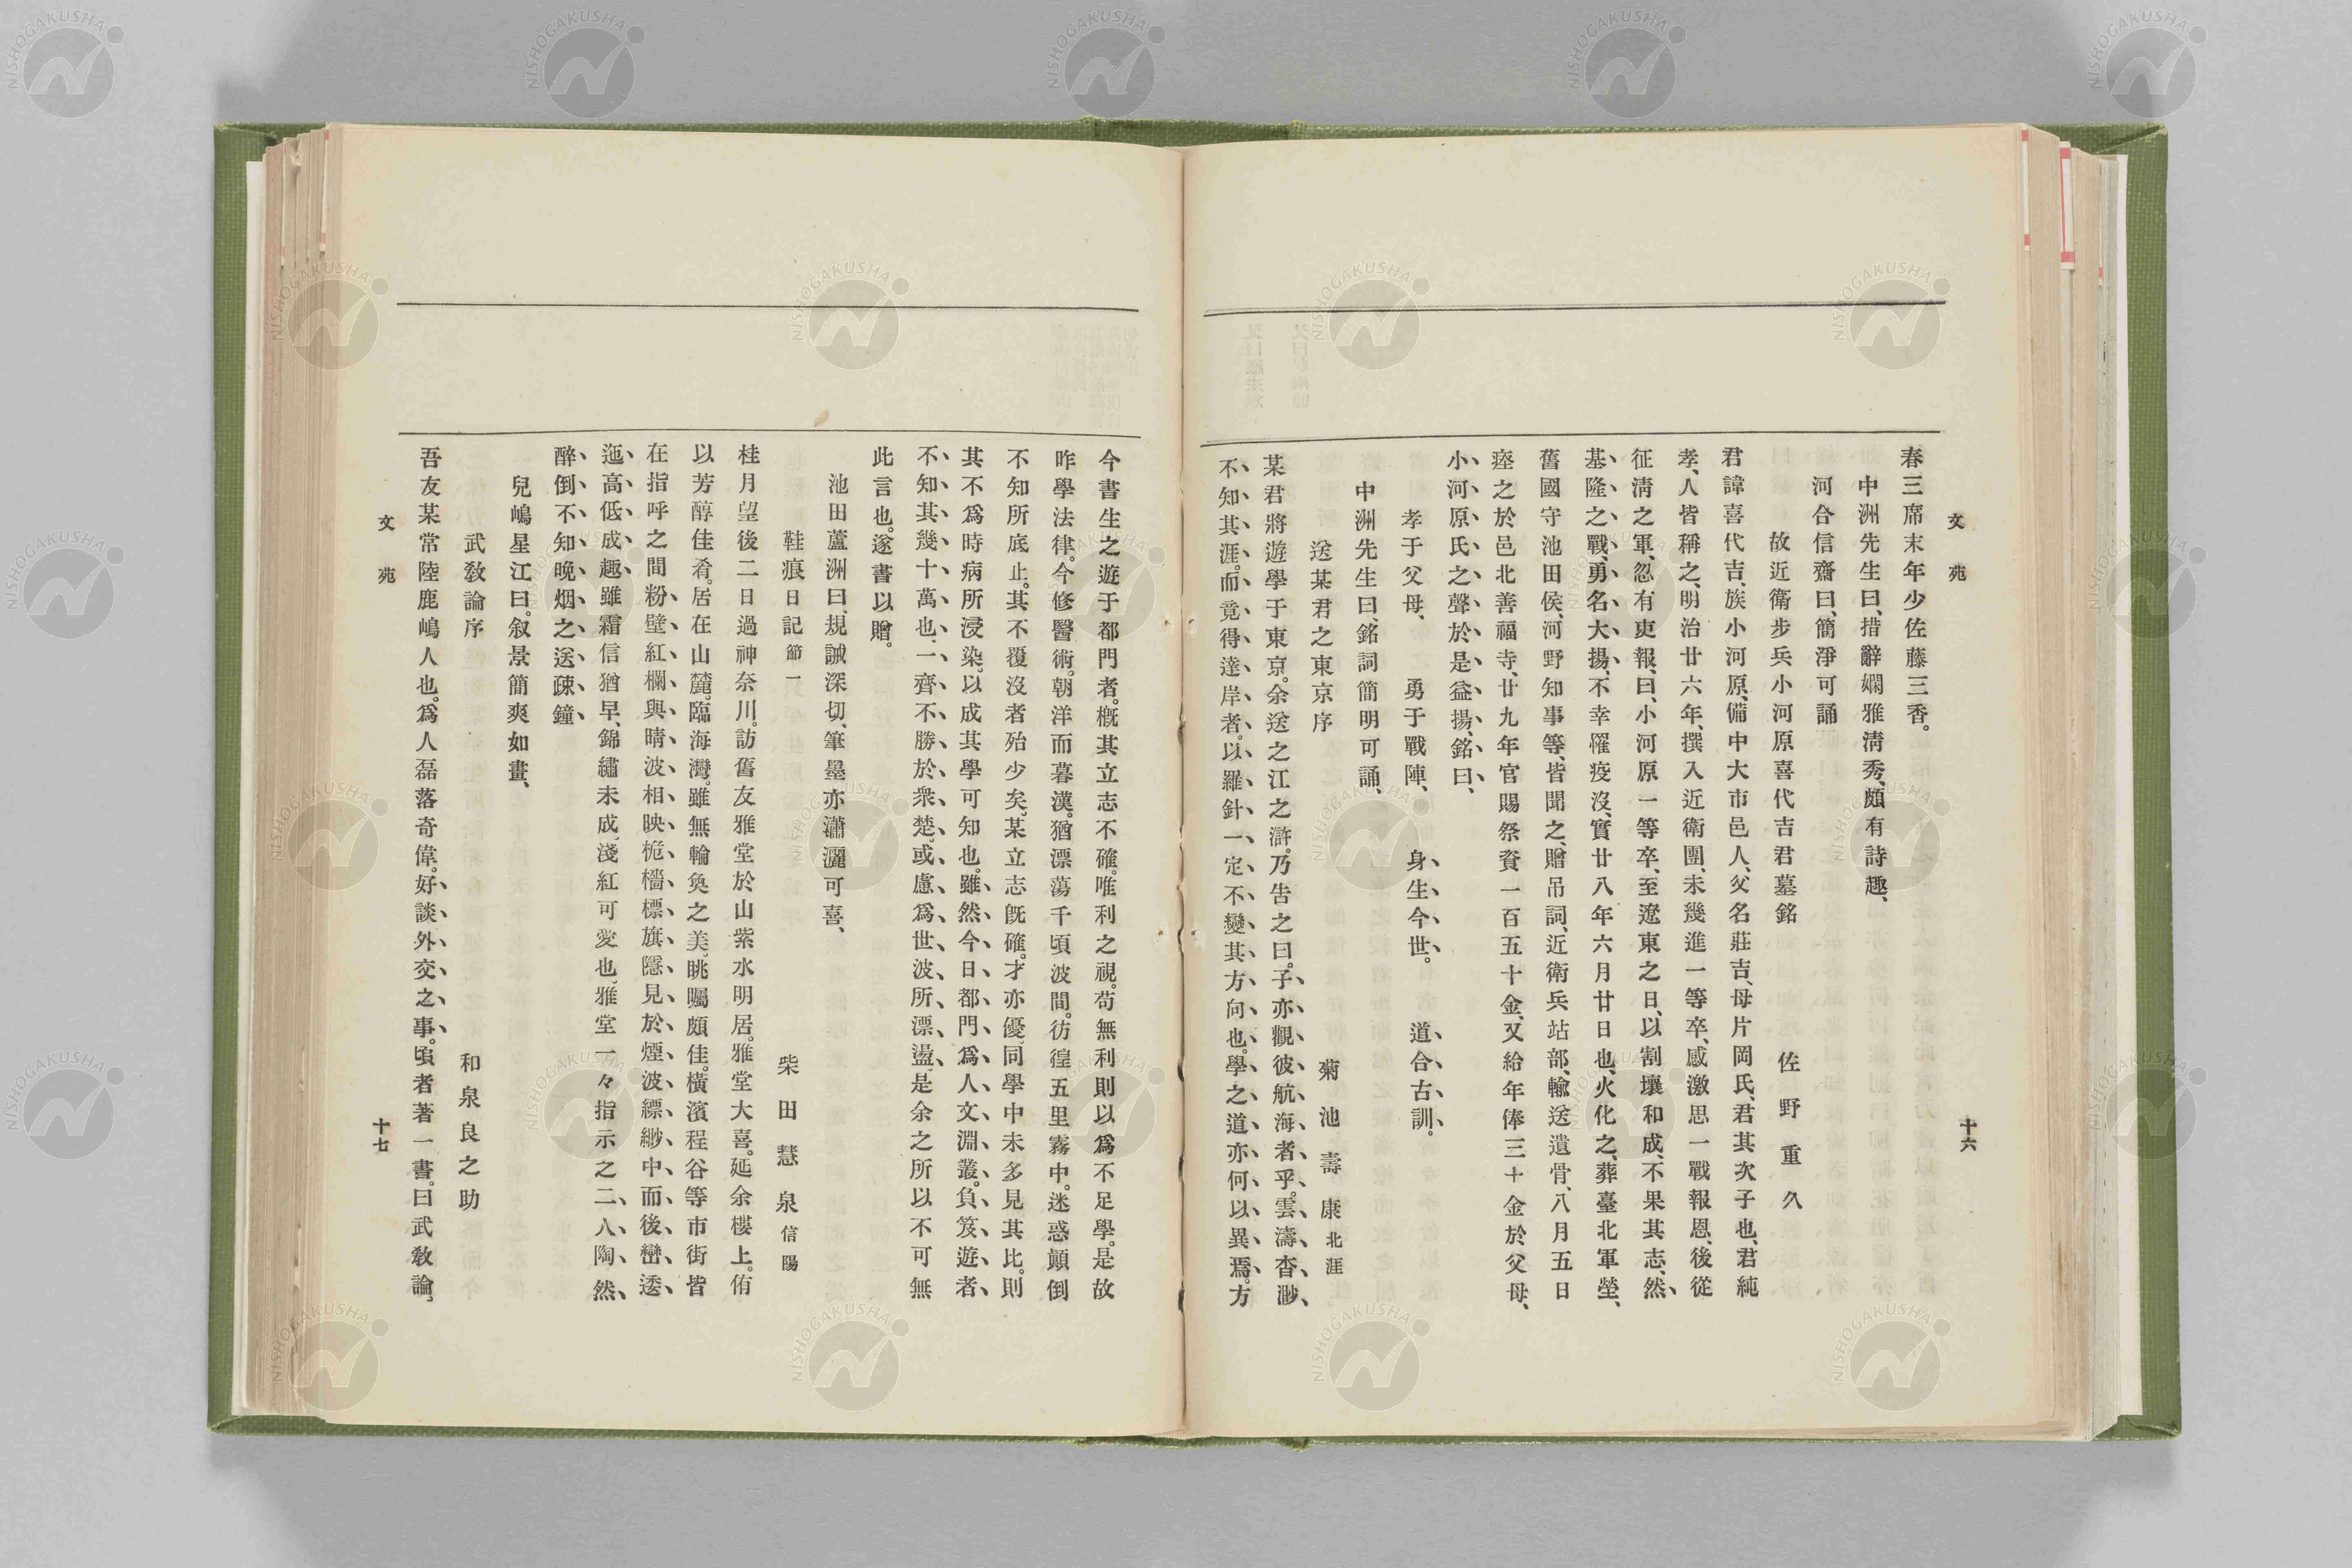 文苑
十六
春三席末年少佐藤三香。
中洲先生曰、措辭嫻雅淸秀、頗有詩趣、
河合信齋曰、簡淨可誦
故近衛步兵小河原喜代吉君墓銘　佐野重久
君諱喜代吉、族小河原、備中大市邑人、父名莊吉、母片岡氏、君其次子也、君純
孝、人皆稱之、明治廿六年、撰入近衛團、未幾進一等卒、感激思一戰報恩、後從
征淸之軍、忽有吏報、曰、小河原一等卒、至遼東之日、以割壤和成、不果其志、然
基隆之戰、勇名大揚、不幸罹疫沒、實廿八年六月廿日也、火化之、葬臺北軍塋、
舊國守池田侯、河野知事等、皆聞之、贈吊詞、近衛兵站部、輸送遺骨、八月五日
瘞之於邑北善福寺、廿九年官賜祭資一百五十金、又給年俸三十金於父母、
小河原氏之聲、於是益揚、銘曰、
孝于父母、　勇于戰陣、　身生今世。　道合古訓。
中洲先生曰、銘詞簡明可誦、
送某君之東京序　菊池壽康北涯
某君將遊學于東京。余送之江之滸。乃告之曰。子亦觀彼航海者乎。雲濤杳渺、
不知其涯。而竟得達岸者。以羅針一定不變其方向也。學之道亦何以異焉。方
今書生之遊于都門者。概其立志不確。唯利之視。苟無利則以爲不足學。是故
昨學法律。今修醫術。朝洋而暮漢。猶漂蕩千頃波間。彷徨五里霧中。迷惑顚倒
不知所底止。其不覆沒者殆少矣。某立志既確。才亦優。同學中未多見其比。則
其不爲時病所浸染。以成其學可知也。雖然今日都門、爲人文淵叢。負笈遊者、
不知其幾十萬也、一齊不勝於衆楚。或慮爲世波所漂盪、是余之所以不可無
此言也。遂書以贈。
池田蘆洲曰、規誡深切、筆墨亦瀟灑可喜、
鞋痕日記節一　柴田慧泉信陽
桂月望後二日過神奈川。訪舊友雅堂於山紫水明居。雅堂大喜。延余樓上。侑
以芳醇佳肴。居在山麓。臨海灣。雖無輪奐之美、眺矚頗佳。橫濱程谷等市街皆
在指呼之間。粉壁紅欄、與晴波相映、桅檣標旗、隱見於煙波縹緲中、而後巒逶
迤、高低成趣、雖霜信猶早、錦繡未成、淺紅可愛也、雅堂一々指示之、二人陶然
醉倒、不知晚烟之送疎鐘、
兒嶋星江曰。叙景簡爽如畫、
武敎論序　和泉良之助
吾友某常陸鹿嶋人也。爲人磊落奇偉。好談外交之事。頃者著一書。曰武敎論。
文苑
十七